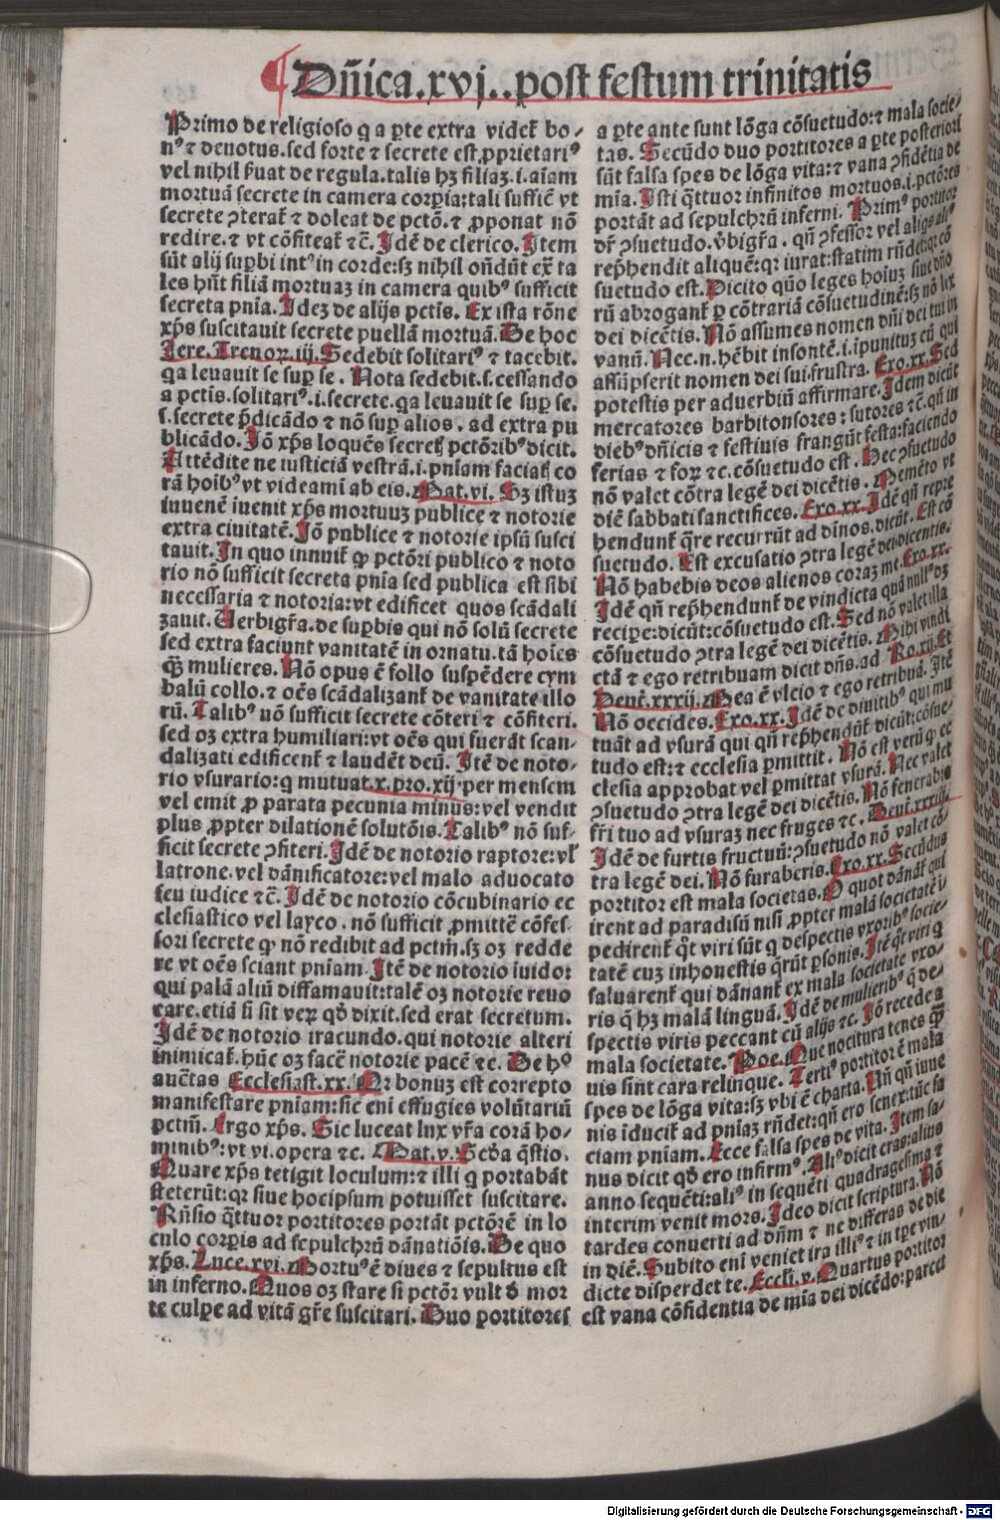 Dñica.xvj..post festum trinitatis
Primo de religioso q̃ a ꝑte extra videt᷑ bo-
nꝰ ⁊ deuotus.sed forte ⁊ secrete est ꝓprietariꝰ
vel nihil ẜuat de regula.talis hꝫ filiaꝫ.i.aiam
mortuã secrete in camera corꝑis:tali sufficit vt
secrete ꝯterat᷑ ⁊ doleat de pctõ.⁊ ꝓponat nõ
redire.⁊ vt cõfiteat᷑ ⁊c̃. Idẽ de clerico. Item
sũt alij suꝑbi intꝰ in corde:sꝫ nihil oñdũt ex̃ ta
les hñt filiã mortuaꝫ in camera quibꝰ sufficit
secreta pnĩa. Ideꝫ de alijs pctis. Ex ista rõne
xp̃s suscitauit secrete puellã mortuã. De hoc
Jere. Trenoꝝ.iij. Sedebit solitariꝰ ⁊ tacebit.
qa leuauit se suꝑ se. Nota sedebit.s.cessando
a pctis.solitariꝰ.i.secrete.qa leuauit se suꝑ se.
s.secrete p̃dicãdo ⁊ nõ suꝑ alios.ad extra pu
blicãdo. Jõ xp̃s loquẽs secretꝭ pctõribꝰ dicit.
Attẽdite ne iusticiã vestrã.i.pniam faciatꝭ co
rã hoibꝰ vt videamĩ ab eis. Mat.vi. Sꝫ istuꝫ
iuuenẽ inuenit xp̃s mortuuꝫ publice ⁊ notorie
extra ciuitatẽ. Jõ publice ⁊ notorie ipsũ susci
tauit. In quo innuit᷑ ꝙ pctõri publico ⁊ noto
rio nõ sufficit secreta pnia sed publica est sibi
necessaria ⁊ notoria:vt edificet quos scãdali
zauit. Uerbigr̃a.de suꝑbis qui nõ solũ secrete
sed extra faciunt vanitatẽ in ornatu.tã hoĩes
q̃ꝫ mulieres. Nõ opus ẽ follo suspẽdere cym
balũ collo.⁊ oẽs scãdalizant᷑ de vanitate illo
rũ. Talibꝰ nõ sufficit secrete cõteri ⁊ cõfiteri.
sed oꝫ extra humiliari:vt oẽs qui fuerãt scan-
dalizati edificent᷑ ⁊ laudẽt deũ. Itẽ de noto-
rio vsurario:q̃ mutuat.x.pro.xij.per mensem
vel emit ꝓ parata pecunia minus:vel vendit
plus ꝓpter dilationẽ solutõis. Talibꝰ nõ suf-
ficit secrete ꝯfiteri. Idẽ de notorio raptore:vl̃
latrone.vel dãnificatore:vel malo aduocato
seu iudice ⁊c̃. Idẽ de notorio cõcubinario ec
clesiastico vel layco.nõ sufficit ꝓmittẽ cõfes-
sori secrete ꝙ nõ redibit ad pctm̃.sꝫ oꝫ redde
re vt oẽs sciant pniam. Itẽ de notorio iuidor
qui palã aliũ diffamauit:talẽ oꝫ notorie reuo
care.etiã si sit verꝝ qd̃ dixit.sed erat secretum.
Idẽ de notorio iracundo.qui notorie alteri
inimicat᷑.hũc oꝫ facẽ notorie pacẽ ⁊c. De hº
auctꝭtas Ecclesiast.xx. Qr bonuꝫ est correpto
manifestare pniam:sic eni effugies volũtariũ
pctm̃. Ergo xp̃s. Sic luceat lux vr̃a corã ho-
minibꝰ:vt vi.opera ⁊c. Mat.v. Scd̃a q̃stio.
Quare xp̃s tetigit loculum:⁊ illi q̃ portabãt
steterũt:qꝛ siue hocipsum potuisset suscitare.
Rñsio q̃ttuor portitores portãt pctõrẽ in lo
culo corꝑis ad sepulchrũ dãnatiõis. De quo
xp̃s. Luce.xvi. Mortuꝰ ẽ diues ⁊ sepultus est
in inferno. Quos oꝫ stare si pctõr vult d̃ mor
te culpe ad vitã gr̃e suscitari. Duo portitores
a ꝑte ante sunt lõga cõsuetudo:⁊ mala socie-
tas. Secũdo duo portitores a ꝑte posteriori
sũt falsa spes de lõga vita:⁊ vana ꝯfidẽtia de
mĩa. Isti q̃ttuor infinitos mortuos.i.pctõres
portãt ad sepulchrũ inferni. Primꝰ portitor
dr̃ ꝯsuetudo.v̾bigr̃a. qñ ꝯfessor vel aliqs aliꝰ
rep̃hendit aliquẽ:qꝛ iurat:statim rñdet:qꝛ cõ
suetudo est. Dicito quõ leges hoiuꝫ siue dño
rũ abrogant᷑ ꝑ cõtrariã cõsuetudinẽ:sꝫ nõ lex
dei dicẽtis. Nõ assumes nomen dñi dei tui in
vanũ. Nec.n.hẽbit insontẽ.i.ipunituꝫ eũ qui
assũpserit nomen dei sui frustra. Exo.xx. Sed
potestis per aduerbiũ affirmare. Idem dicũt
mercatores barbitonsores:sutores ⁊c̃.qñ in
diebꝰ dñicis ⁊ festiuis frangũt festa:faciendo
ferias ⁊ forꝝ ⁊c.cõsuetudo est. Hec ꝯsuetudo
nõ valet cõtra legẽ dei dicẽtis. Memẽto vt
diẽ sabbati sanctifices. Exo.xx. Idẽ qñ repre
hendunt᷑ q̃re recurrũt ad diuinos.dicũt. Est cõ
suetudo. Est excusatio ꝯtra legẽ dei dicentis.
Nõ habebis deos alienos coraꝫ me. Exo.xx.
Idẽ qñ rep̃hendunt᷑ de vindicta quã nullꝰ dꝫ
recipe:dicũt:cõsuetudo est. Sed nõ valet illa
cõsuetudo ꝯtra legẽ dei dicẽtis. Mihi vindi
ctã ⁊ ego retribuam dicit dñs.ad Ro.xij. Et
Deut᷑.xxxij. Mea ẽ vlcio ⁊ ego retribuã. Itẽ
Nõ occides. Exo.xx. Idẽ de diuitibꝰ qui mu
tuãt ad vsurã qui qñ rep̃hendũt᷑ dicũt:cõsue-
tudo est:⁊ ecclesia ꝑmittit. Nõ est verũ ꝙ ec
clesia approbat vel ꝑmittat vsurã. Nec valet
ꝯsuetudo ꝯtra legẽ dei dicẽtis. Nõ fenerabis
fr̃i tuo ad vsuraꝫ nec fruges ⁊c. Deut᷑.xxxiij.
Idẽ de furtis fructuũ:ꝯsuetudo nõ valet cõ-
tra legẽ dei. Nõ furaberis. Exo.xx. Secũdus
portitor est mala societas. O quot dãnãt᷑ qui
irent ad paradisũ nisi ꝓpter malã societatẽ i-
pedirent᷑ q̃t viri sũt q̃ despectis vxoribꝰ socie-
tatẽ cuꝫ inhonestis q̃rũt ꝑsonis. Itẽ q̃t viri q̃
saluarent᷑ qui dãnant᷑ ex mala societate vxo-
ris q̃ hꝫ malã linguã. Idẽ de mulieribꝰ q̃ de-
spectis viris peccant cũ alijs ⁊c. Jõ recede a
mala societate. Poe. Que nocitura tenes q̃ꝫ
uis sint cara relinque. Tertiꝰ portitor ẽ mala
spes de lõga vita:sꝫ vbi ẽ charta. Uñ qñ iuue
nis iducit᷑ ad pniaꝫ rñdet:qñ ero senex:tũc fa
ciam pniam. Ecce falsa spes de vita. Item sa-
nus dicit qd̃ ero infirmꝰ. Aliꝰ dicit cras:alius
anno sequẽti:aliꝰ in sequẽti quadragesima ⁊
interim venit mors. Ideo dicit scriptura. Nõ
tardes conuerti ad dñm ⁊ ne differas de die
in diẽ. Subito eni veniet ira illiꝰ ⁊ in tꝑe vin-
dicte disperdet te. Eccli.v. Quartus portitor
est vana cõfidentia de mĩa dei dicẽdo:parcet
Digitalisierung gefördert durch die Deutsche Forschungsgemeinschaft - DFG